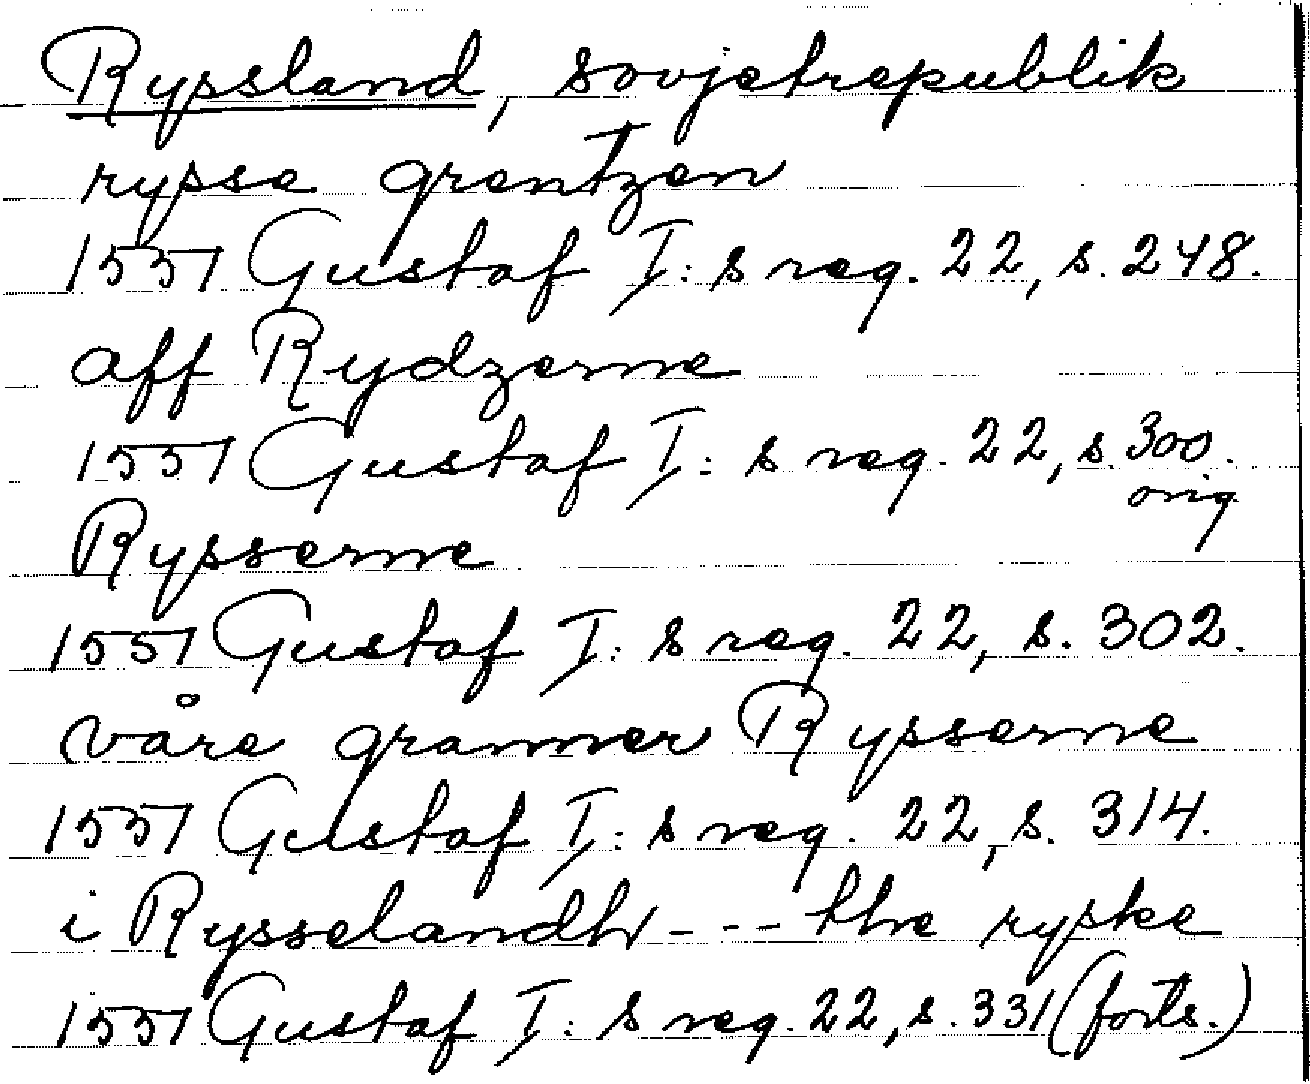 Ryssland, sovjetrepublik
rysse grentzen
1551 Gustaf I:s reg. 22, s. 248.
aff Rydzerne
1551 Gustaf I:s reg. 22, s. 300.
orig
Rysserne
1551 Gustaf I:s reg. 22, s. 302.
våre granner Rysserne
1551 Gustaf I:s reg. 22, s. 314.
i Rysselandh --- the ryske
1551 Gustaf I:s reg. 22, s. 331 (forts.)